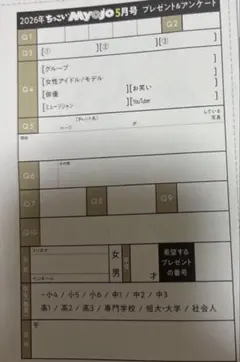 2026年 ちっこい Myojo 5月号 プレゼント&アンケート
Q1
Q2
Q3
[①
][②
][③
]
Q4
[グループ
]
[女性アイドル/モデル
]
[俳優
][お笑い
]
[ミュージシャン
][YouTuber
]
Q5
[タレント名]
ページ
が
している
写真
Q6
その他
Q7
Q8
Q9
Q10
女
男
才
希望する
プレゼント
の番号
小4 / 小5 / 小6 / 中1 / 中2 / 中3
高1 / 高2 / 高3 / 専門学校 / 短大・大学 / 社会人
〒